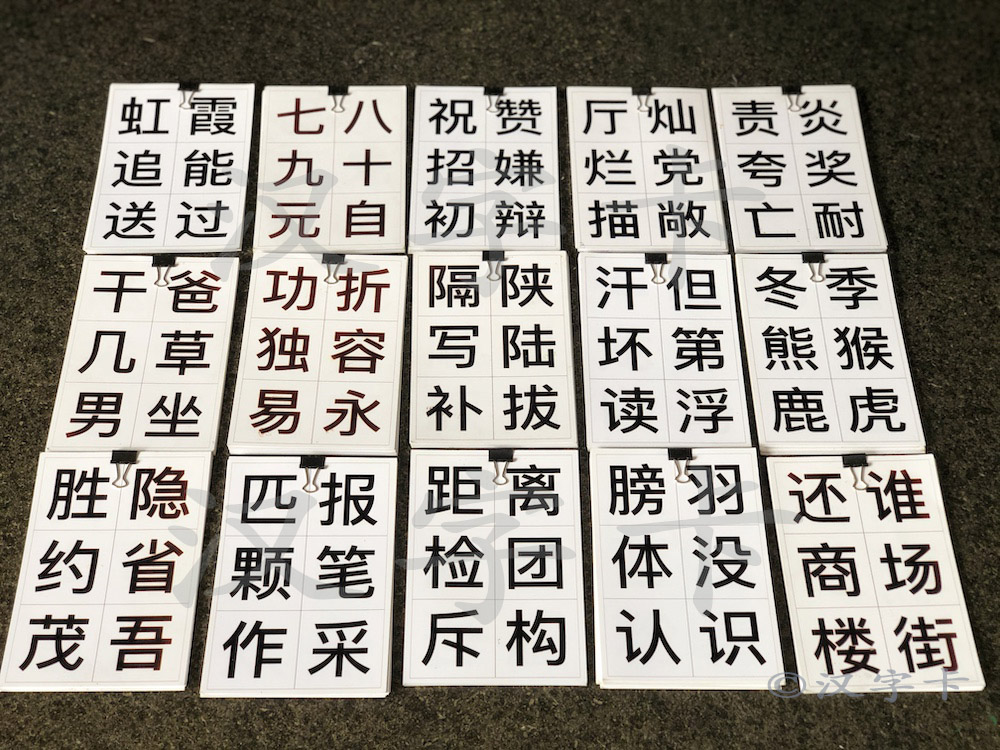 虹霞
追能
送过
七八
九十
元自
祝赞
招嫌
初辩
厅灿
烂党
描敞
责炎
夸奖
亡耐
干爸
几草
男坐
功折
独容
易永
隔陕
写陆
补拔
汗但
坏第
读浮
冬季
熊猴
鹿虎
胜隐
约省
茂吾
匹报
颗笔
作采
距离
检团
斥构
膀羽
体没
认识
还谁
商场
楼街
汉字卡
汉字卡
©汉字卡